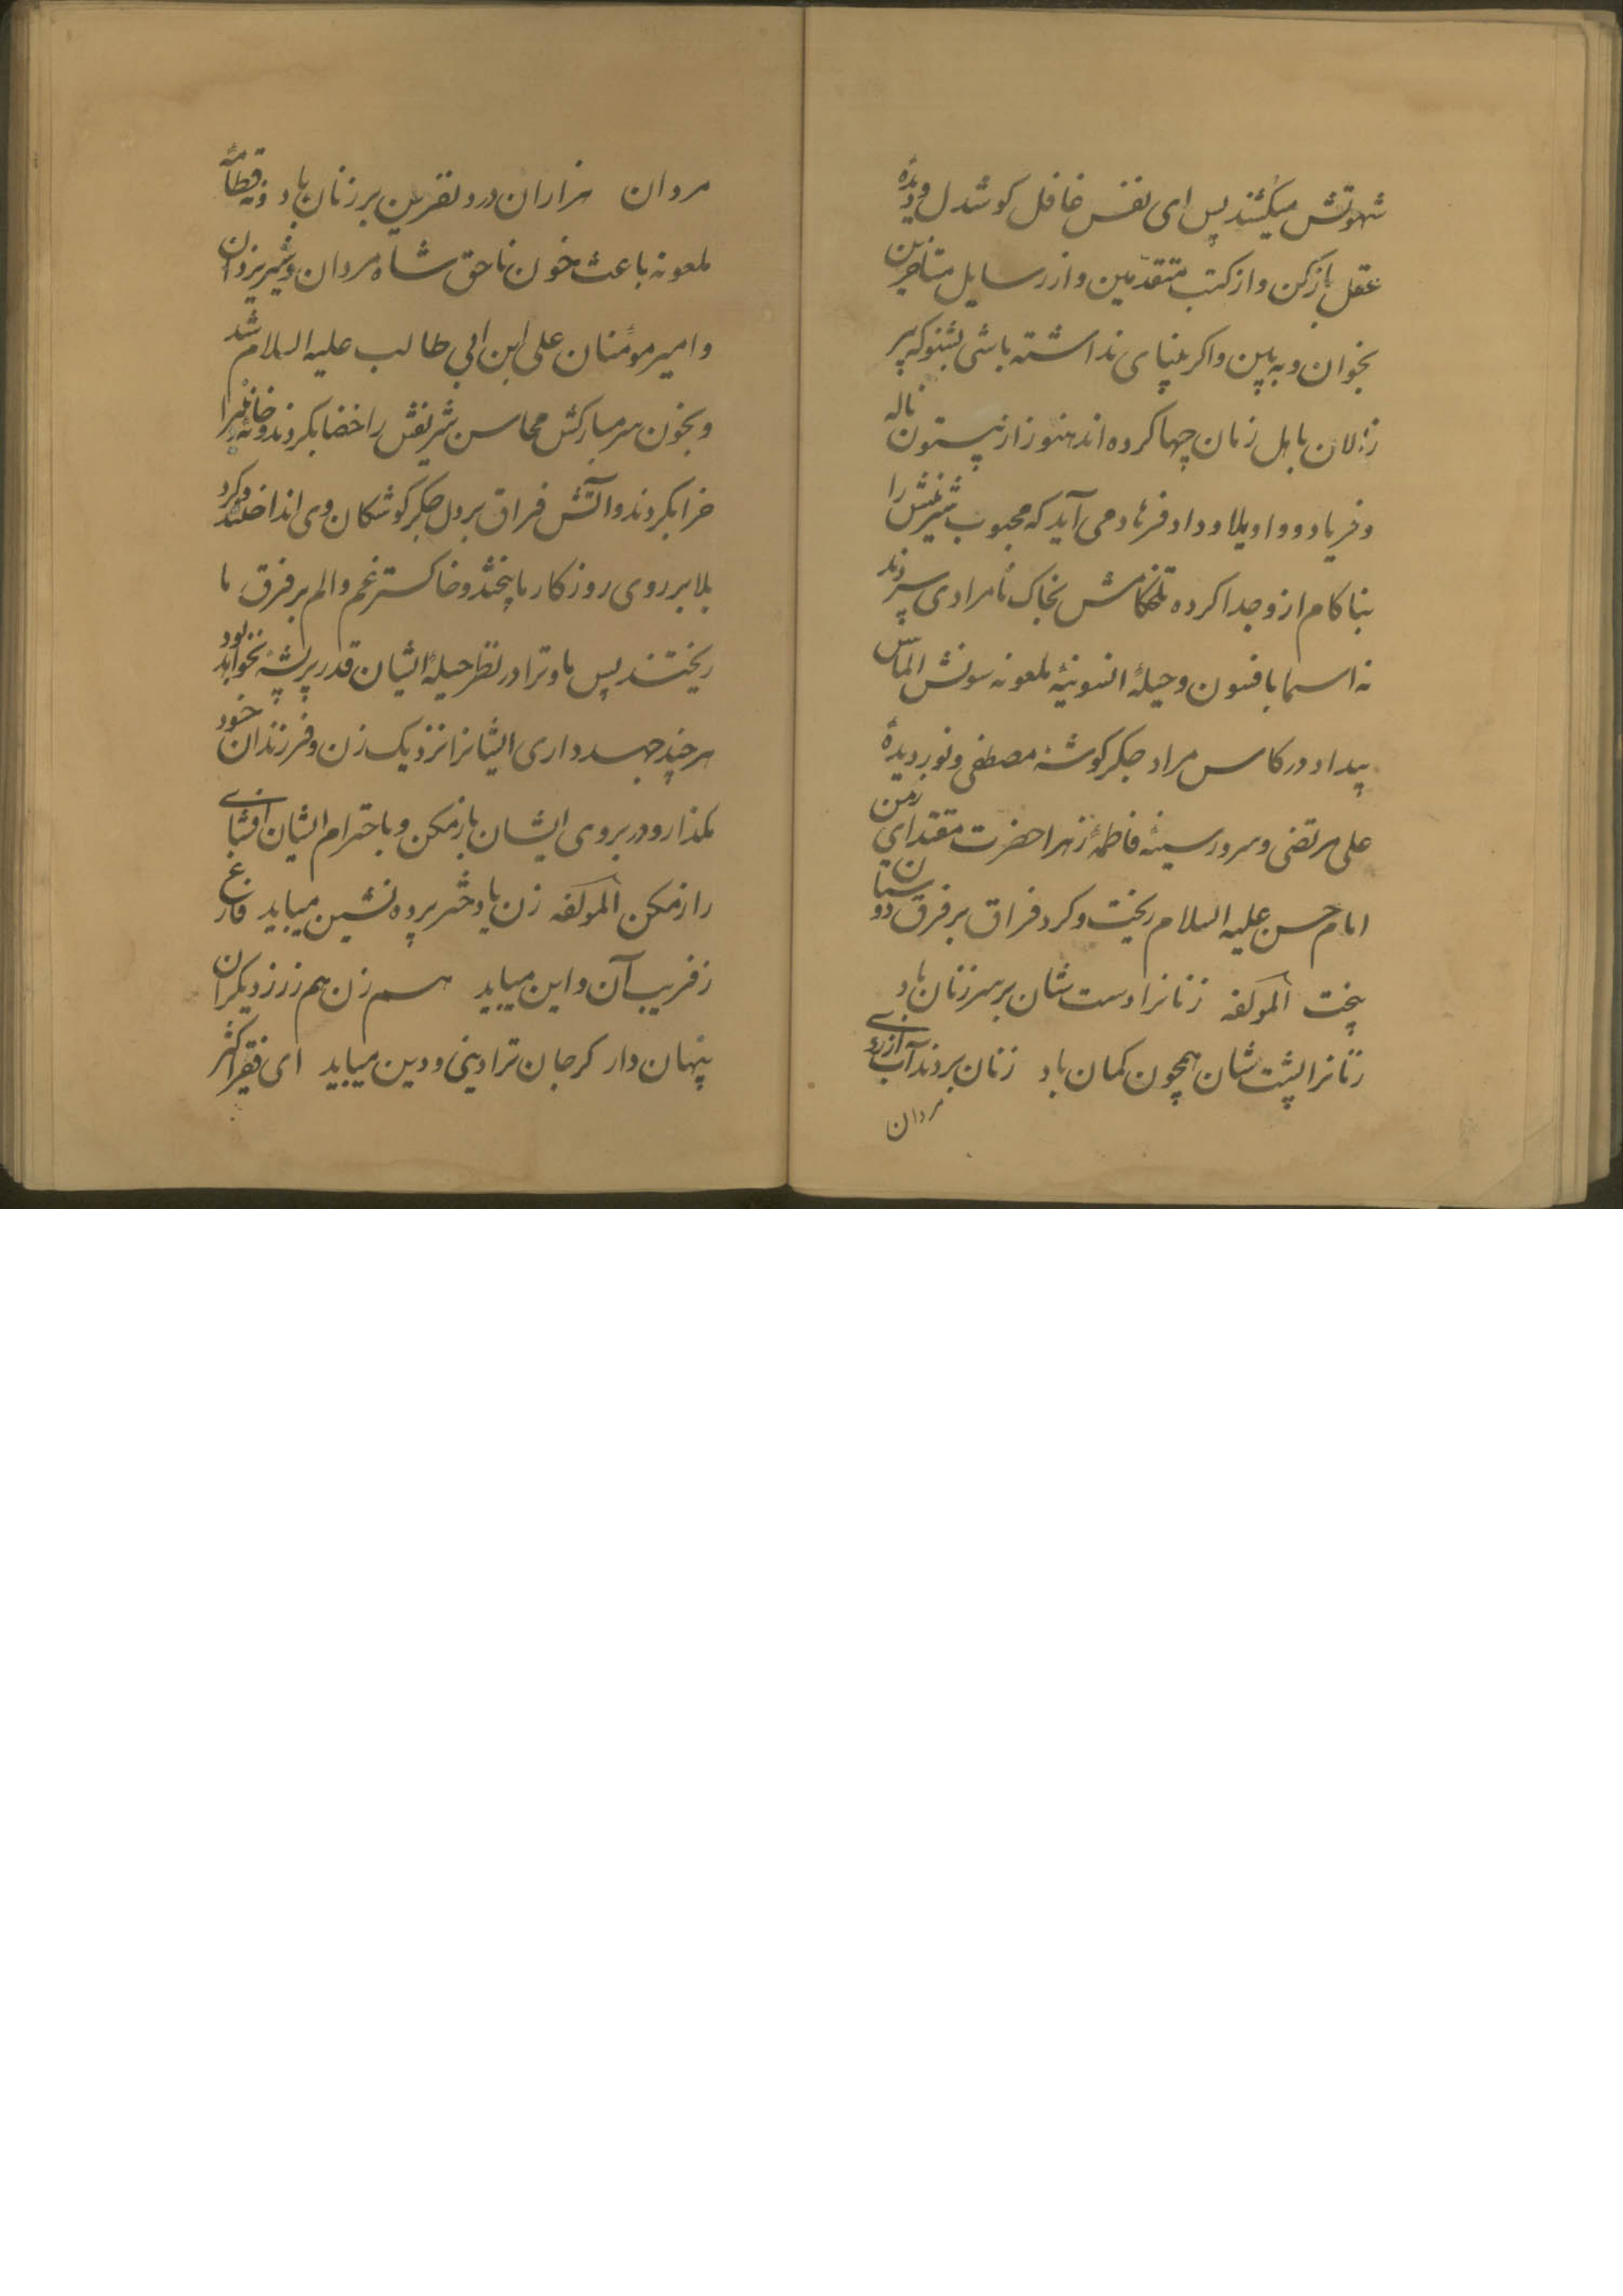 شهوتش میکشند پس ای نفس غافل کوش دل و دیدهٔ
عقل باز کن و از کتب متقدمین و از رسایل متاخرین
بخوان و به بین و اکر بینایی نداشته باشی بشنو که پیر
زالان با اهل زمان چها کرده اند هنوز از بیستون ناله
و فریاد و واویلا و داد فرهاد می آید که محبوب شیرینش را
بناکام ازو جدا کرده تلخکامش بخاک نامرادی سپردند
نه اسما بافسون و حیلهٔ ملعونه سونش الماس
بیداد در کاس مراد جکر کوشهٔ مصطفی و نور دیدهٔ
علی مرتضی و سرور سینهٔ فاطمهٔ زهرا حضرت مقتدای زمن
امام حسن علیه السلام ریخت و کرد فراق بر فرق دوستان
بیخت لمولفه زنانرا دست شان بر سر زنان باد
زنانرا پشت شان همچون کمان باد زنان بردند آب از روی
مردان
مردان هزاران درد و نفرین بر زنان باد و نه قطامهٔ
ملعونه باعث خون ناحق شاه مردان و شیر یزدان
و امیر مومنان علی ابن ابی طالب علیه السلام شد
و بخون سر مبارکش محاسن شریفش را خضاب کردند و خانهٔ
خراب کردند و آتش فراق بر دل جکر کوشکان وی انداختند و کرد
بلا بر روی روزکار ما بیختند و خاکستر غم و الم بر فرق ما
ریختند پس ما و ترا در نظر حیلهٔ ایشان قدر پر پشهٔ نخواهد بود
هر چند جهد داری ایشانرا نزدیک زن و فرزندان خود
مکذار و در بروی ایشان باز مکن و باحترام ایشان افشای
راز مکن لمولفه زن یا دختر پرده نشین میباید فارغ
ز فریب آن و این میباید هم زن هم زر ز دیکران
پنهان دار کر جان ترا دینی و دین میباید ای فقیر اکثر